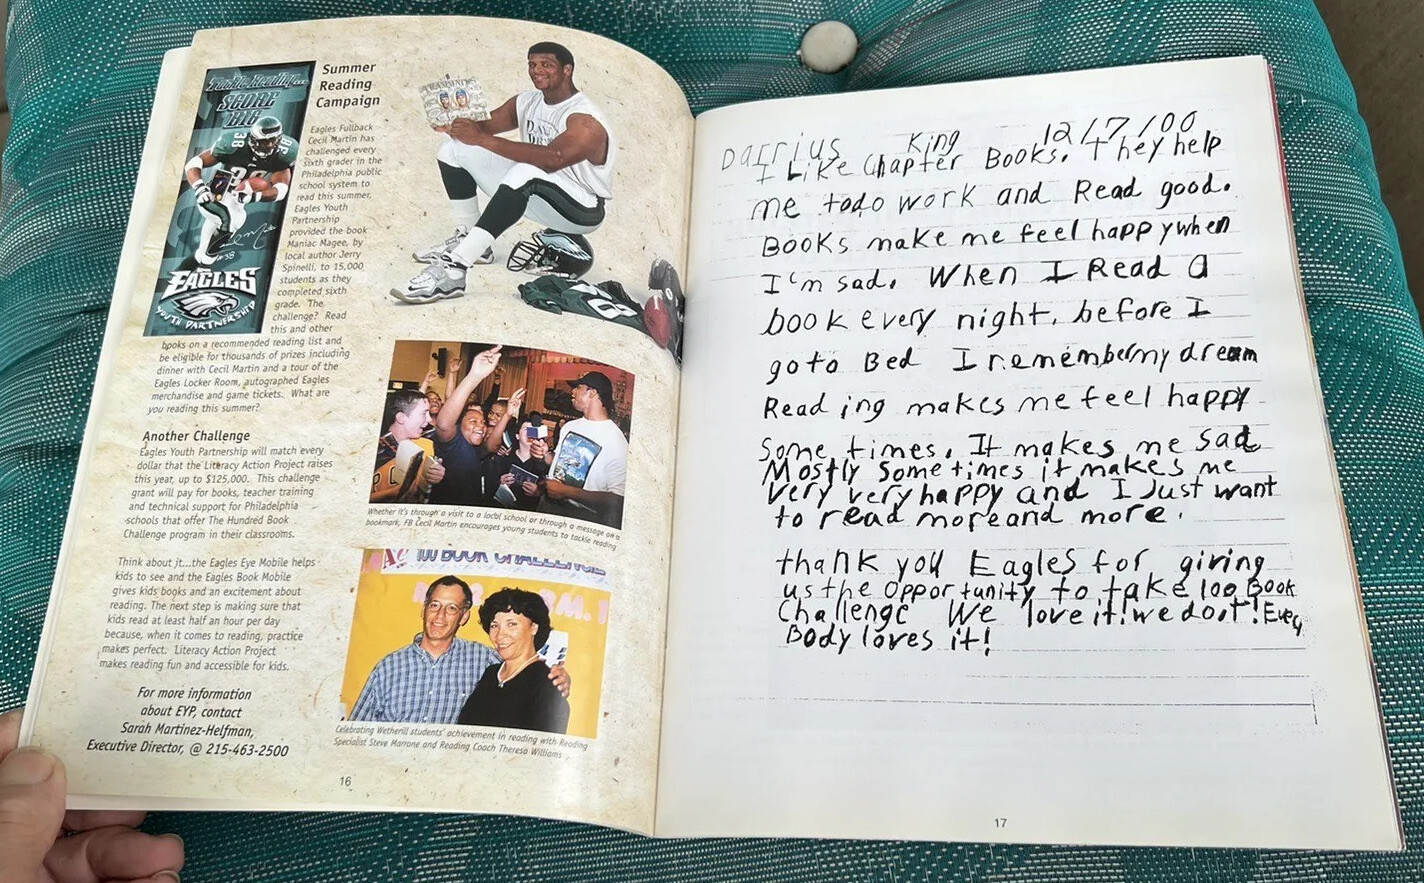 Tackle Reading...
SCORE
BIG
EAGLES
YOUTH PARTNERSHIP
Summer
Reading
Campaign
Eagles Fullback
Cecil Martin has
challenged every
sixth grader in the
Philadelphia public
school system to
read this summer.
Eagles Youth
Partnership
provided the book
Maniac Magee, by
local author Jerry
Spinelli, to 15,000
students as they
completed sixth
grade. The
challenge? Read
this and other
books on a recommended reading list and
be eligible for thousands of prizes including
dinner with Cecil Martin and a tour of the
Eagles Locker Room, autographed Eagles
merchandise and game tickets. What are
you reading this summer?
Another Challenge
Eagles Youth Partnership will match every
dollar that the Literacy Action Project raises
this year, up to $125,000. This challenge
grant will pay for books, teacher training
and technical support for Philadelphia
schools that offer The Hundred Book
Challenge program in their classrooms.
Think about it...the Eagles Eye Mobile helps
kids to see and the Eagles Book Mobile
gives kids books and an excitement about
reading. The next step is making sure that
kids read at least half an hour per day
because, when it comes to reading, practice
makes perfect. Literacy Action Project
makes reading fun and accessible for kids.
For more information
about EYP, contact
Sarah Martinez-Helfman,
Executive Director, @ 215-463-2500
Whether it's through a visit to a local school or through a message on a
bookmark, FB Cecil Martin encourages young students to tackle reading
100 BOOK CHALLENGE
Celebrating Wetherill students' achievement in reading with Reading
Specialist Steve Marrone and Reading Coach Theresa Williams
16
Dairius King 12/7/00
I Like Chapter Books. They help
me todo work and Read good.
Books make me feel happy when
I'm sad. When I Read a
book every night, before I
go to Bed I remember my dream
Reading makes me feel happy
Some times, It makes me sad
Mostly Some times it makes me
very very happy and I Just want
to read more and more.
thank you Eagles for giving
us the Opportunity to take 100 Book
Challenge We love it! we do it! Every
Body loves it!
17